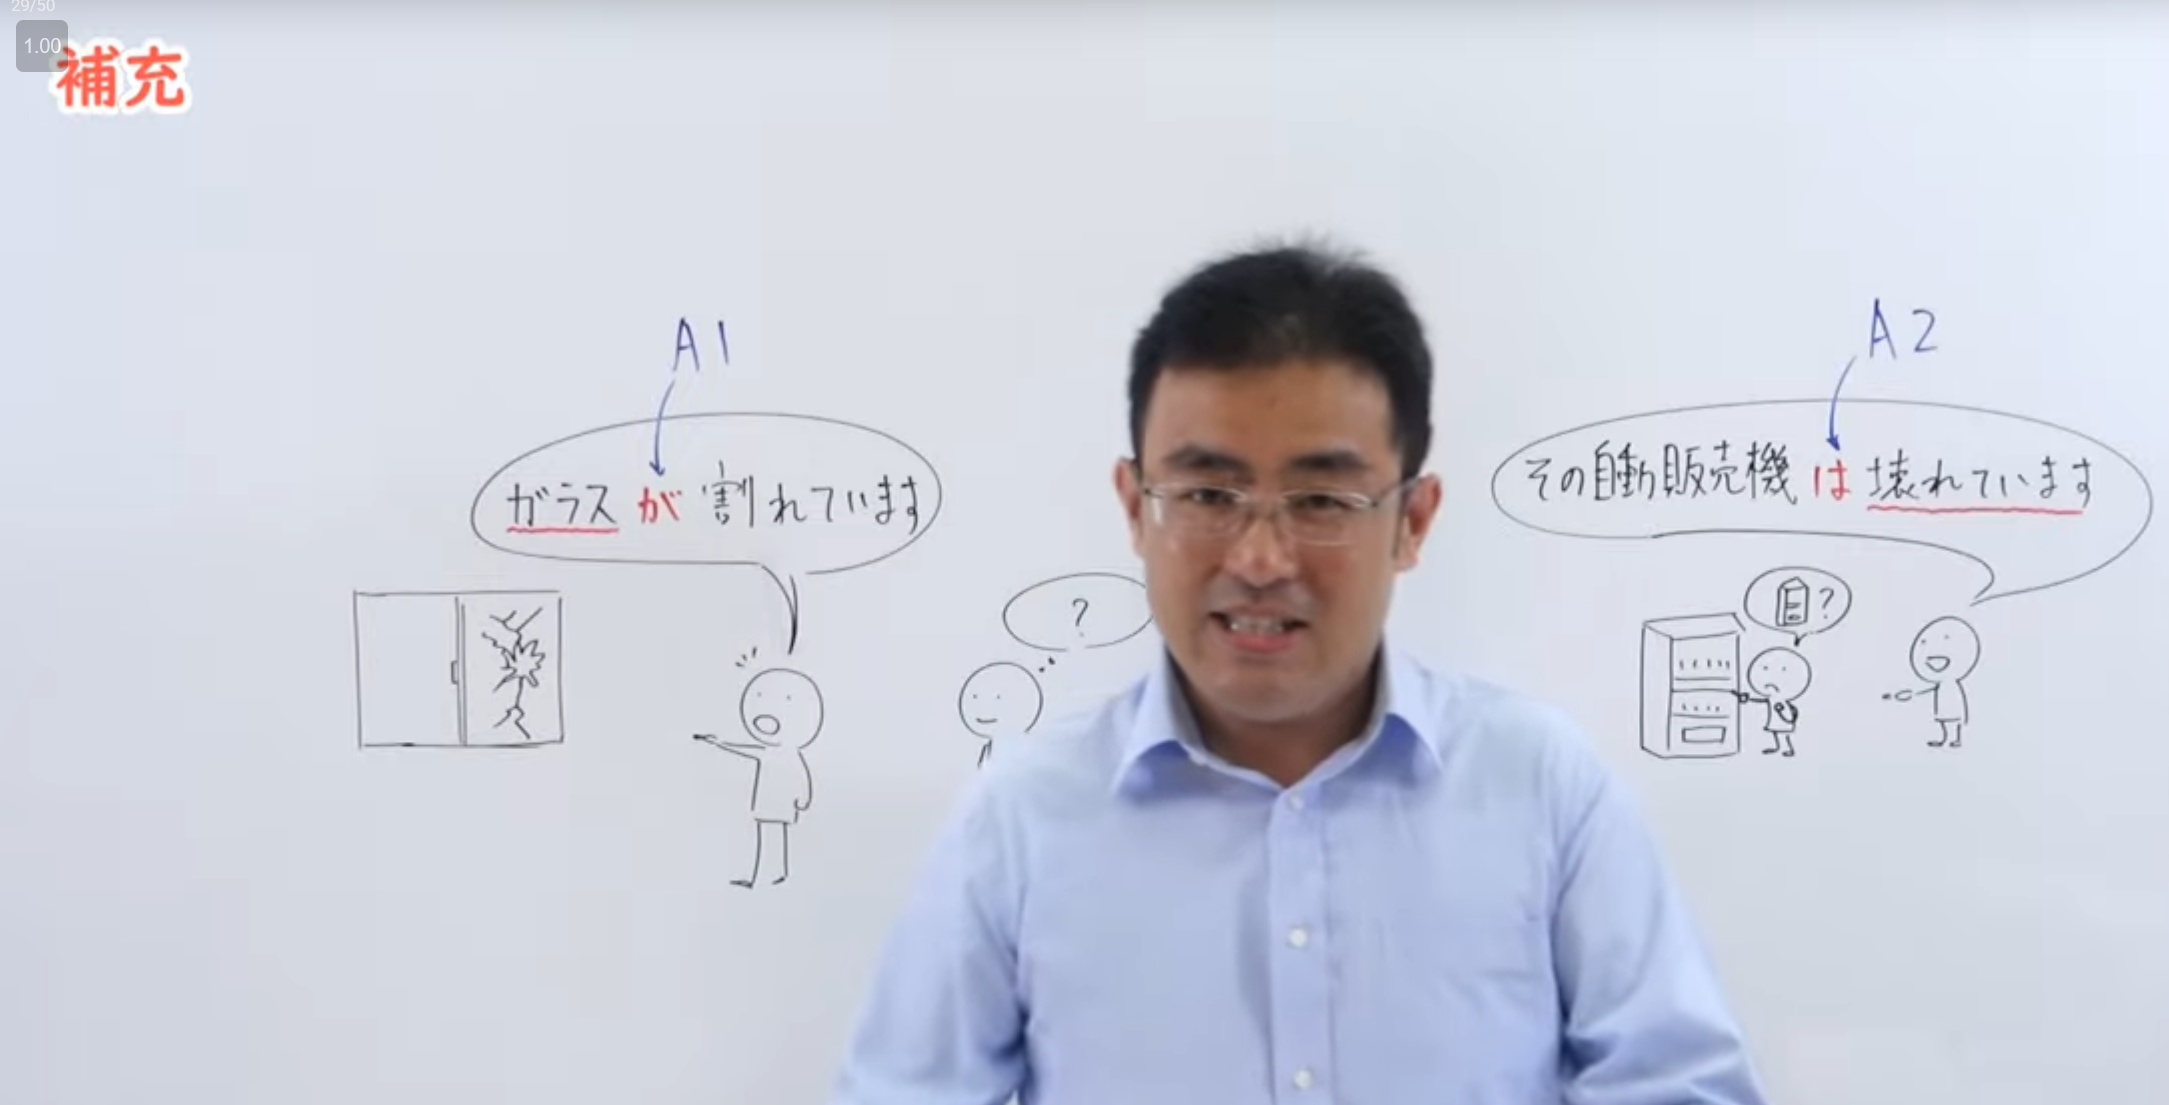 29/50
1.00
補充
A1
ガラスが割れています
?
A2
その自動販売機は壊れています
?